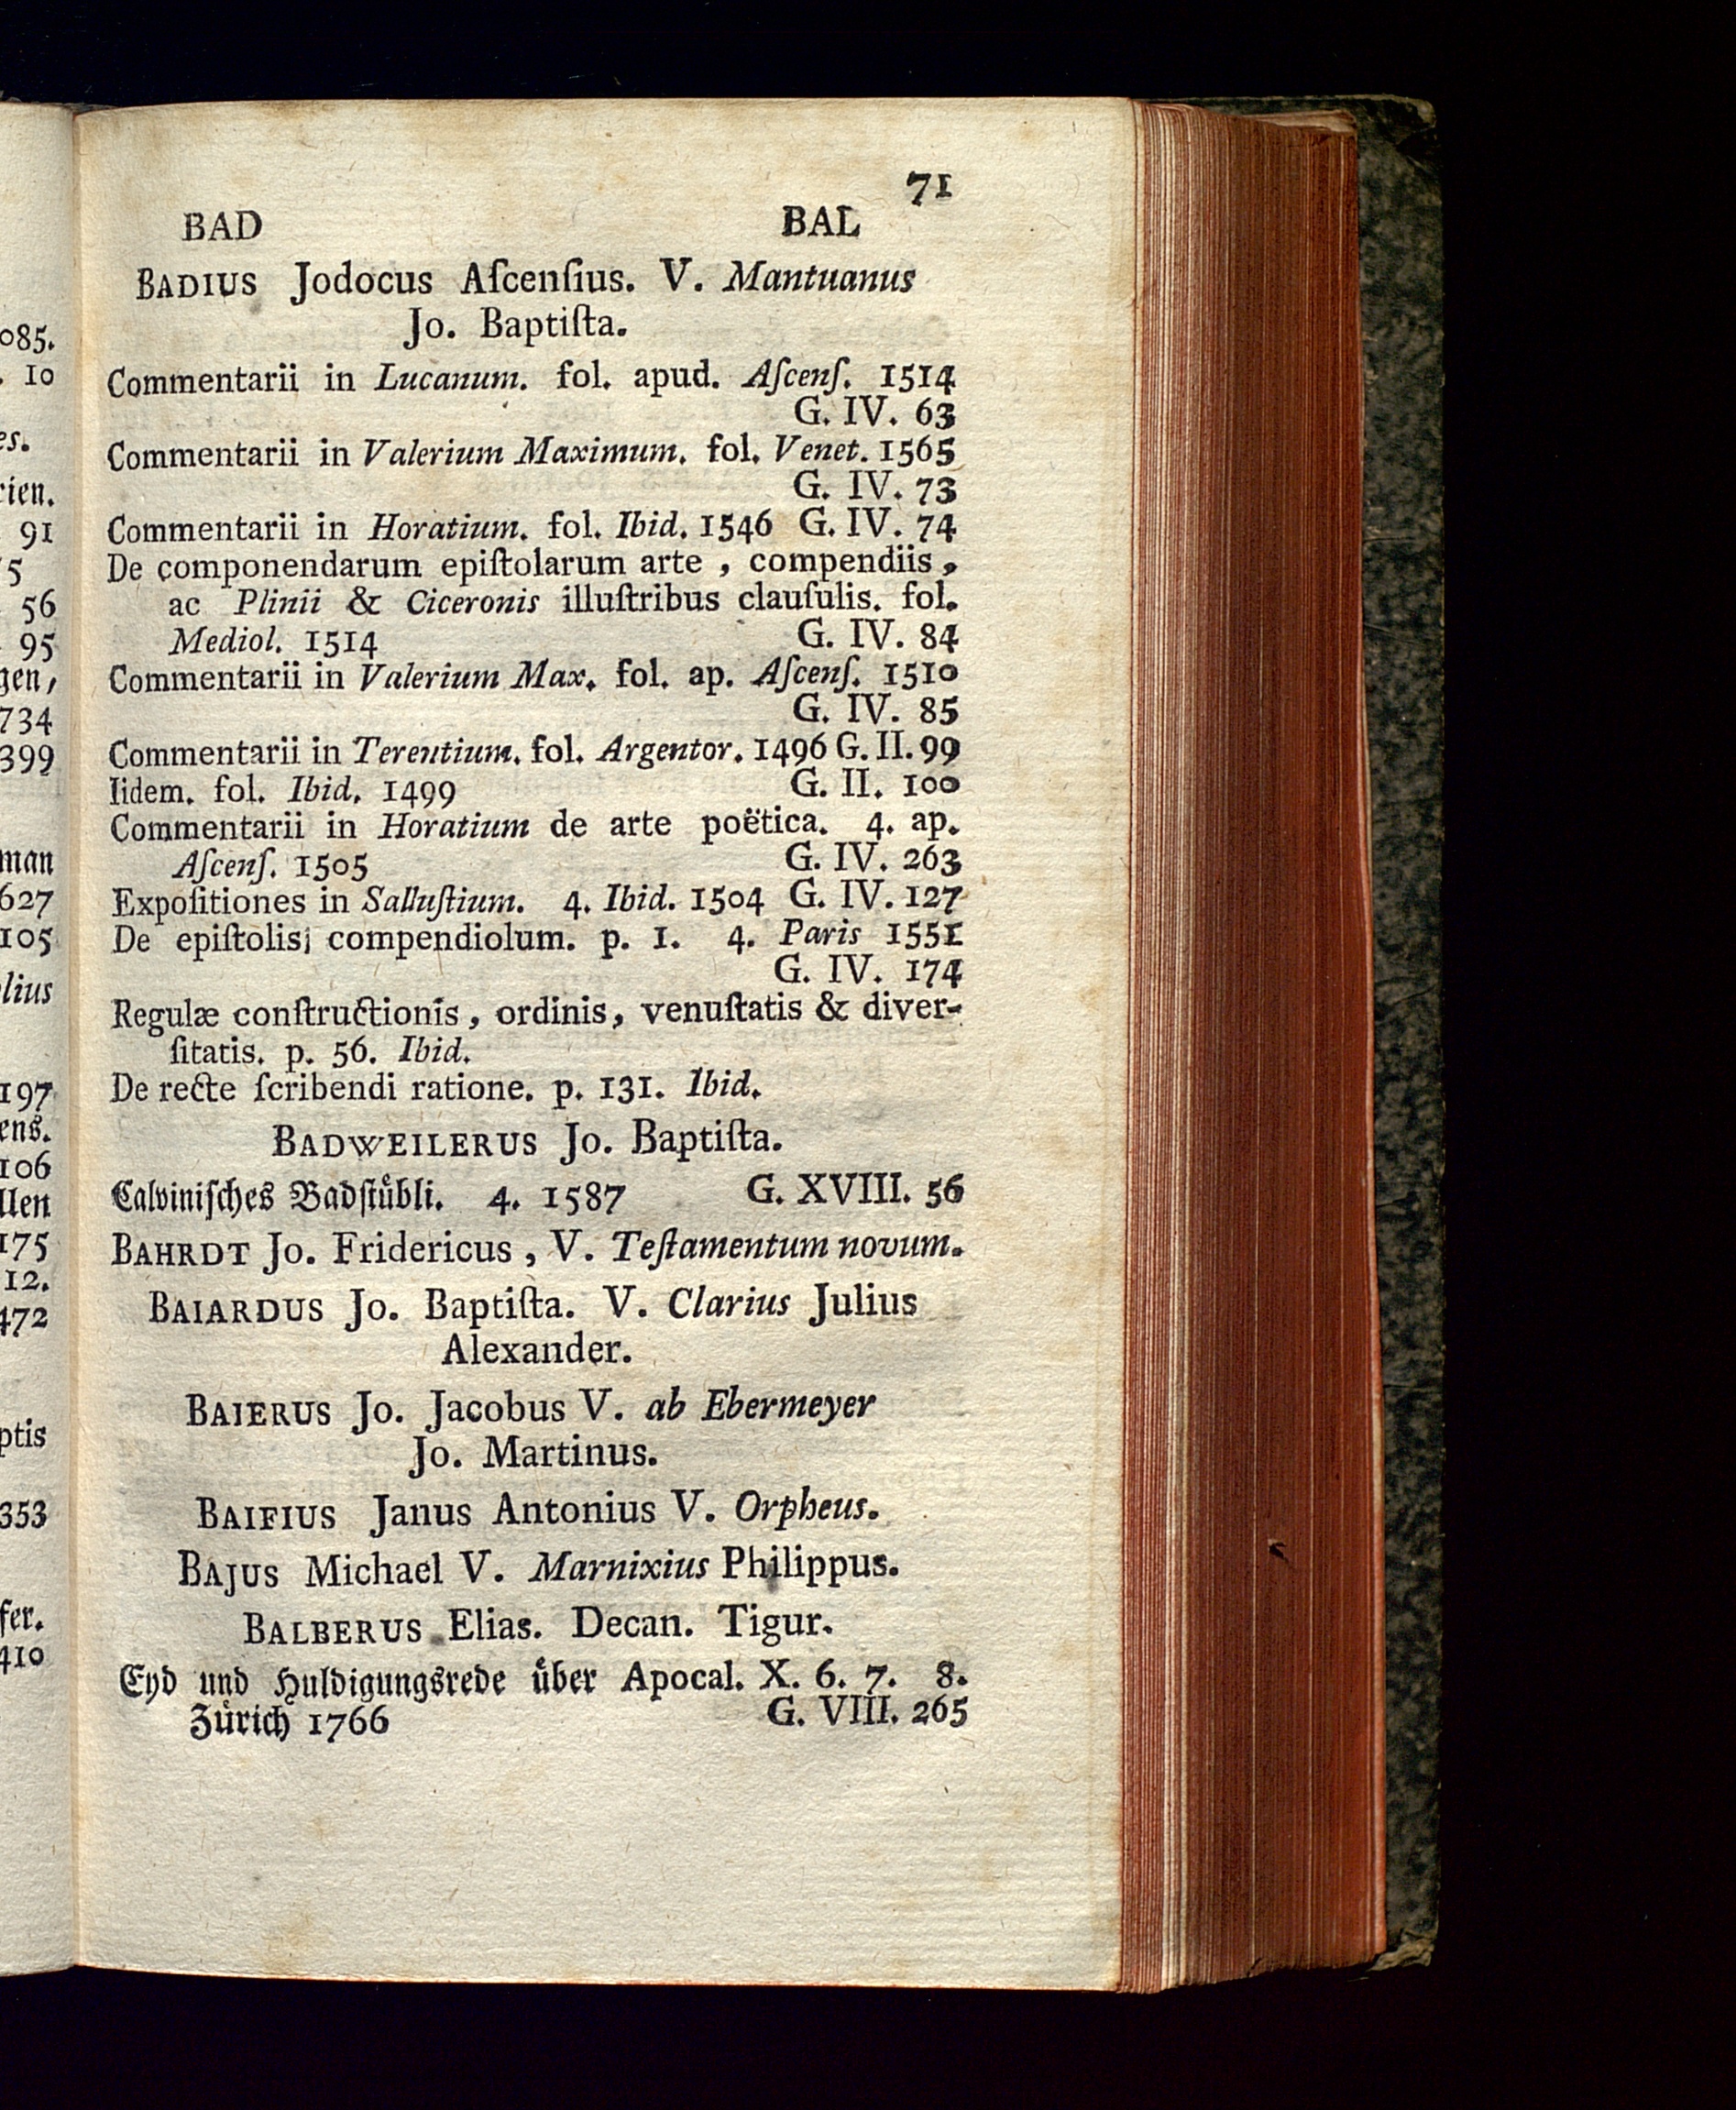 71
BAD BAL
BADIUS Jodocus Aſcenſius. V. Mantuanus
Jo. Baptiſta.
Commentarii in Lucanum. fol. apud. Aſcenſ. 1514
G. IV. 63
Commentarii in Valerium Maximum. fol. Venet. 1565
G. IV. 73
Commentarii in Horatium. fol. Ibid. 1546 G. IV. 74
De componendarum epiſtolarum arte, compendiis,
ac Plinii & Ciceronis illuſtribus clauſulis. fol.
Mediol. 1514 G. IV. 84
Commentarii in Valerium Max. fol. ap. Aſcenſ. 1510
G. IV. 85
Commentarii in Terentium. fol. Argentor. 1496 G. II. 99
Iidem. fol. Ibid. 1499 G. II. 100
Commentarii in Horatium de arte poëtica. 4. ap.
Aſcenſ. 1505 G. IV. 263
Expoſitiones in Salluſtium. 4. Ibid. 1504 G. IV. 127
De epiſtolis; compendiolum. p. 1. 4. Paris 1551
G. IV. 174
Regulæ conſtructionis, ordinis, venuſtatis & diver-
ſitatis. p. 56. Ibid.
De recte ſcribendi ratione. p. 131. Ibid.
BADWEILERUS Jo. Baptiſta.
Calviniſches Badſtuͤbli. 4. 1587 G. XVIII. 56
BAHRDT Jo. Fridericus, V. Teſtamentum novum.
BAIARDUS Jo. Baptiſta. V. Clarius Julius
Alexander.
BAIERUS Jo. Jacobus V. ab Ebermeyer
Jo. Martinus.
BAIFIUS Janus Antonius V. Orpheus.
BAJUS Michael V. Marnixius Philippus.
BALBERUS Elias. Decan. Tigur.
Eyd und Huldigungsrede uͤber Apocal. X. 6. 7. 8.
Zuͤrich 1766 G. VIII. 265
085.
. 10
es.
rien.
91
5
56
95
gen,
734
399
man
627
105
lius
197
ens.
106
llen
175
12.
472
ptis
353
fer.
410